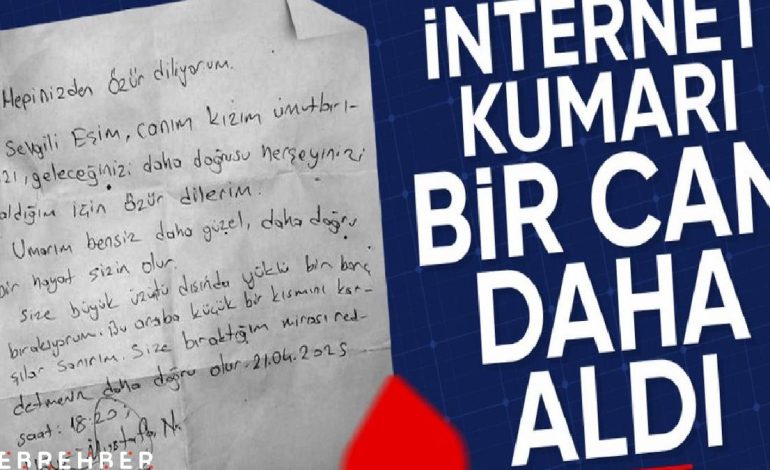 Hepinizden Özür diliyorum.
Sevgili Eşim, canım kızım ümutları-
izi, geleceğinizi daha doğrusu herşeyinizi
aldığım için özür dilerim.
Umarım bensiz daha güzel, daha doğru
bir hayat sizin olur.
size büyük üzüntü dışında yüklü bir borç
bırakıyorum. Bu araba küçük bir kısmını kar-
şılar sanırım. Size bıraktığım mirası red-
detmeniz daha doğru olur. 21.04.2025
saat: 18:20
Mustafa N.
İNTERNET
KUMARI
BİR CAN
DAHA
ALDI
EBREHBER